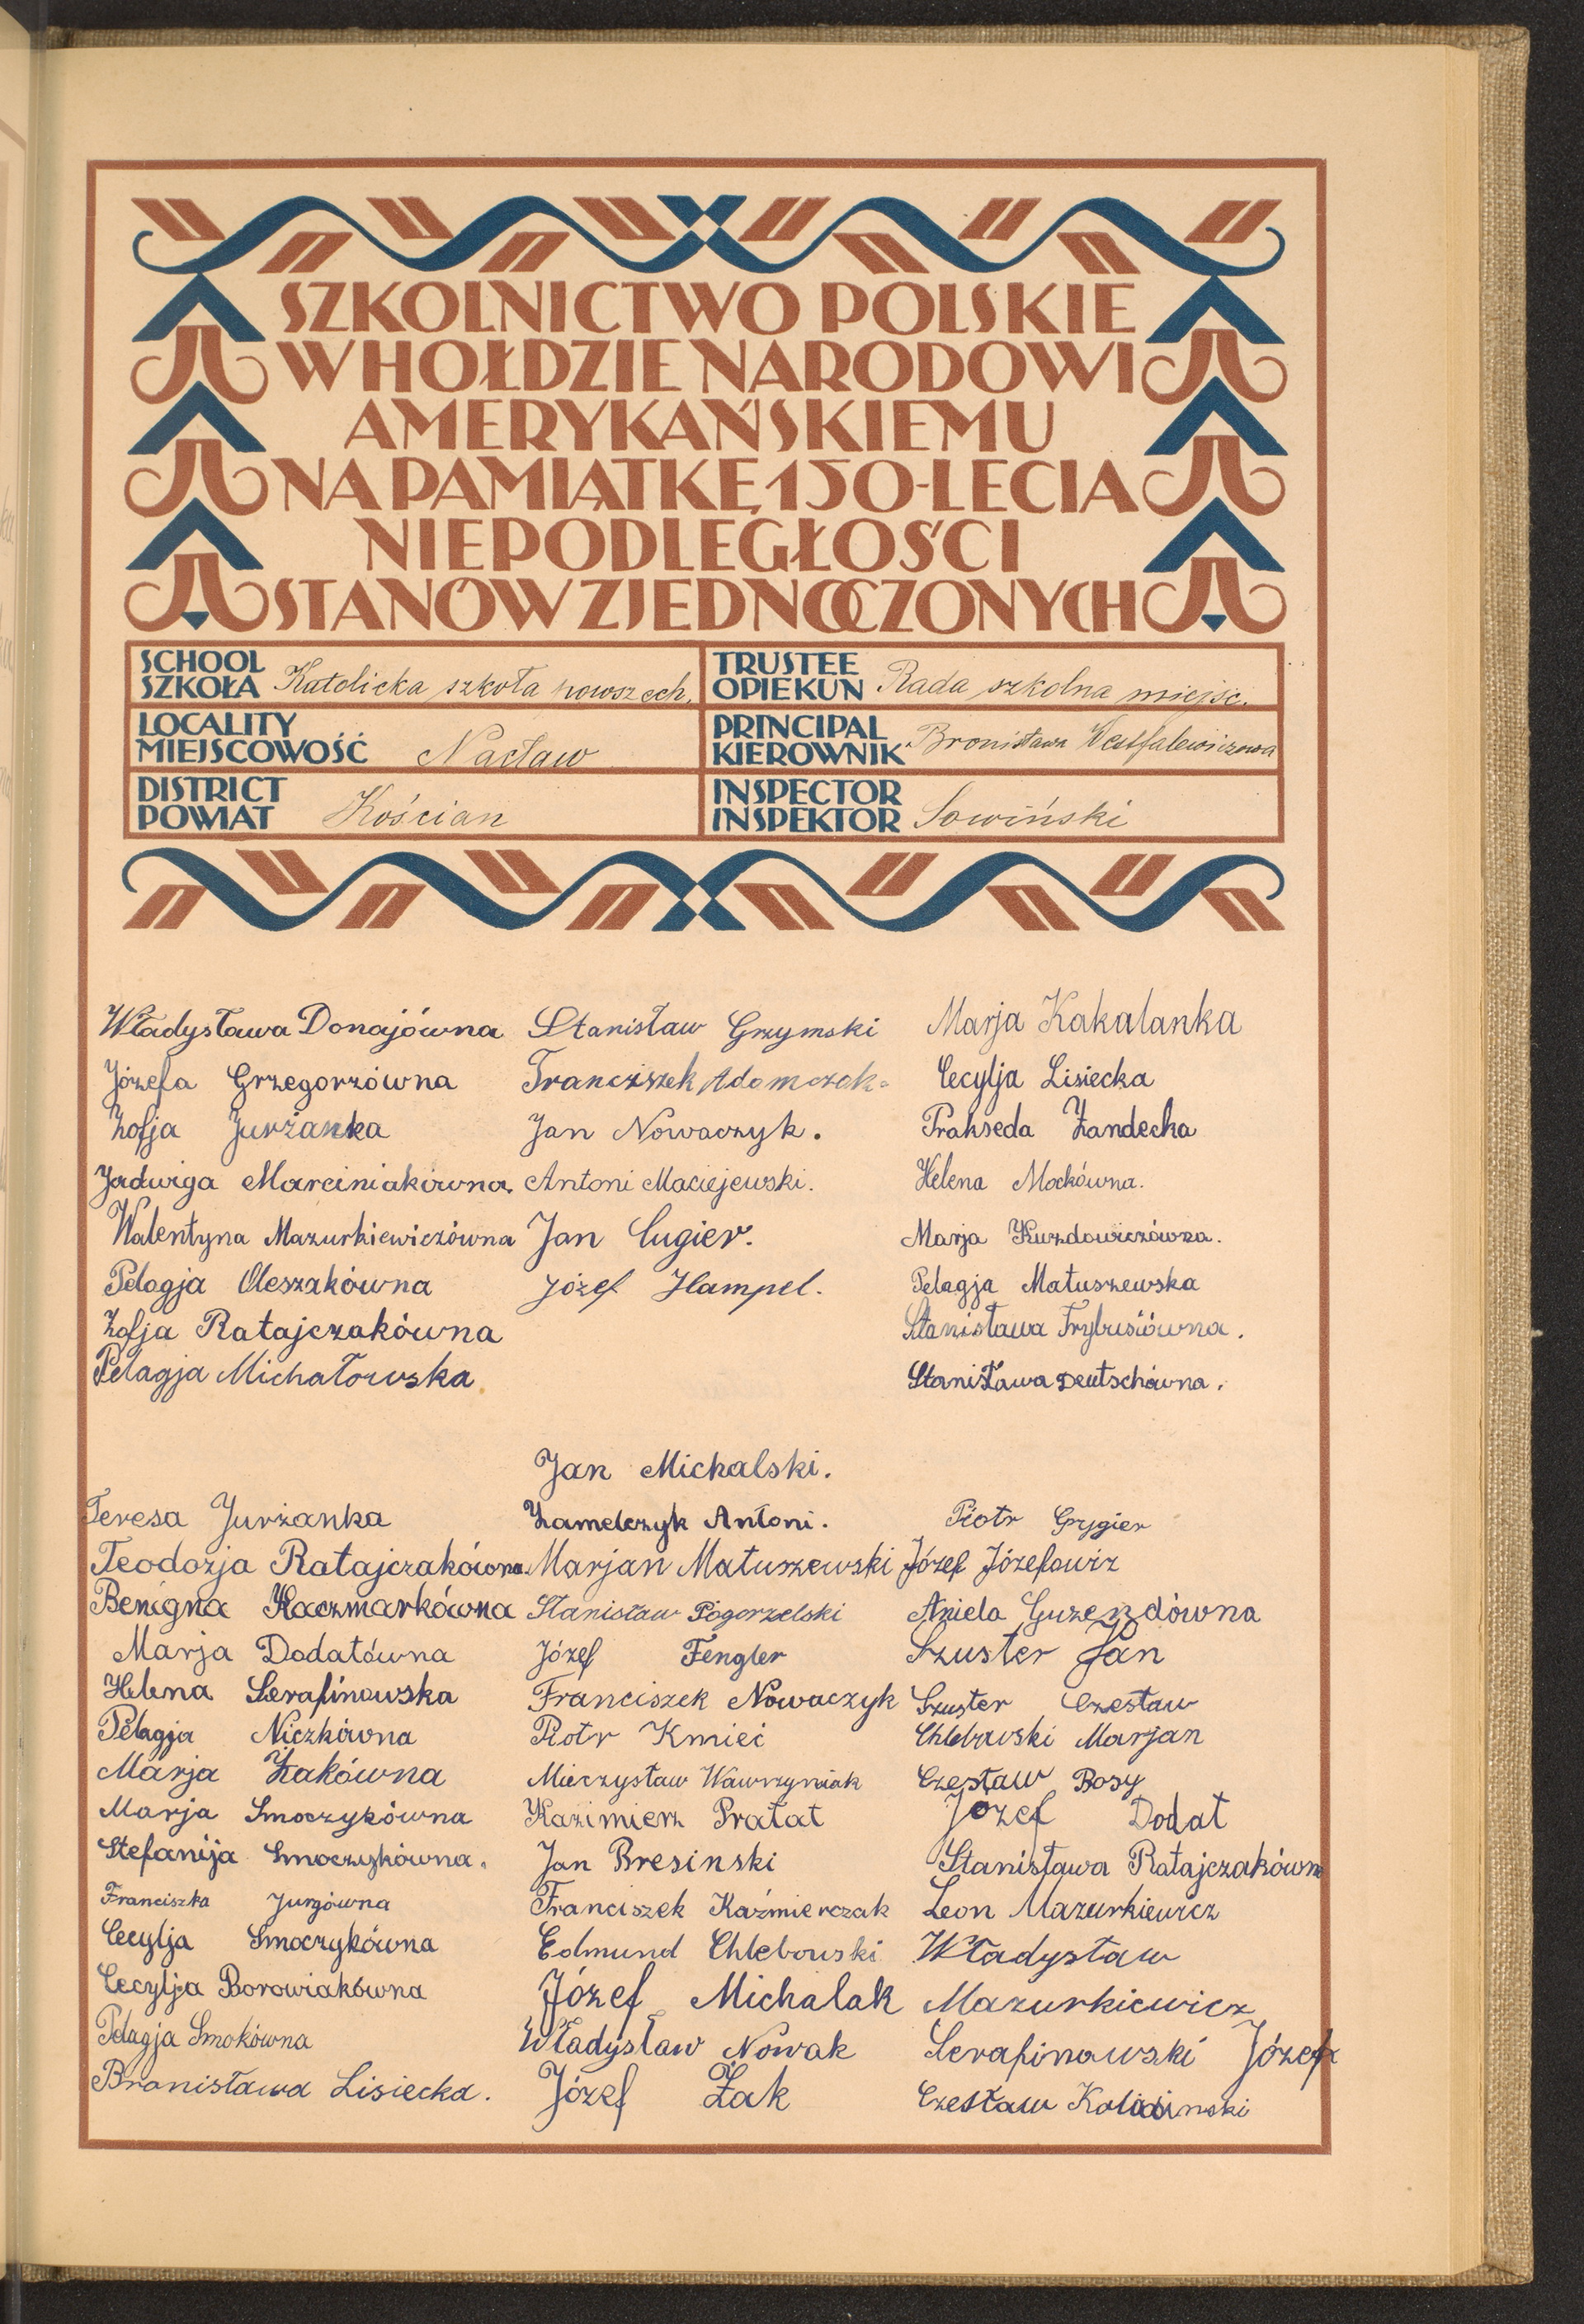 SZKOLNICTWO POLSKIE
W HOŁDZIE NARODOWI
AMERYKAŃSKIEMU
NA PAMIĄTKĘ 150-LECIA
NIEPODLEGŁOŚCI
STANÓW ZJEDNOCZONYCH
SCHOOL
SZKOŁA Katolicka szkoła powszech.
TRUSTEE
OPIEKUN Rada szkolna miejsc.
LOCALITY
MIEJSCOWOŚĆ Nacław
PRINCIPAL
KIEROWNIK Bronisława Westfalewiczowa
DISTRICT
POWIAT Kościan
INSPECTOR
INSPEKTOR Sowiński
Władysława Donajówna
Józefa Grzegorzówna
Zofja Jurżanka
Jadwiga Marciniakówna.
Walentyna Mazurkiewiczówna
Pelagja Oleszakówna
Zofja Ratajczakówna
Pelagja Michałowska
Stanisław Grzymski
Franciszek Adamczak
Jan Nowaczyk.
Antoni Maciejewski.
Jan Cugier.
Józef Hampel.
Marja Kakalanka
Cecylja Lisiecka
Prakseda Żandecka
Helena Mockówna.
Marja Kuzdowiczówna.
Pelagja Matuszewska
Stanisława Frybusiówna.
Stanisława Deutschówna.
Teresa Jurżanka
Teodozja Ratajczakówna.
Benigna Kaczmarkówna
Marja Dodatówna
Helena Serafinowska
Pelagja Niczkówna
Marja Żakówna
Marja Smoczykówna
Stefanija Smoczykówna.
Franciszka Jurgówna
Cecylja Smoczykówna
Cecylja Borowiakówna
Pelagja Smokówna
Bronisława Lisiecka.
Jan Michalski.
Zamelczyk Antoni.
Marjan Matuszewski
Stanisław Pogorzelski
Józef Fengler
Franciszek Nowaczyk
Piotr Kmieć
Mieczysław Wawrzyniak
Kazimierz Prałat
Jan Bresinski
Franciszek Kaźmierczak
Edmund Chlebowski
Józef Michalak
Władysław Nowak
Józef Żak
Piotr Grygier
Józef Józefowiz
Aniela Guzendówna
Szuster Jan
Szuster Czesław
Chlebowski Marjan
Czesław Bosy
Józef Dodat
Stanisława Ratajczakówna
Leon Mazurkiewicz
Władysław
Mazurkiewicz
Serafinowski Józef
Czesław